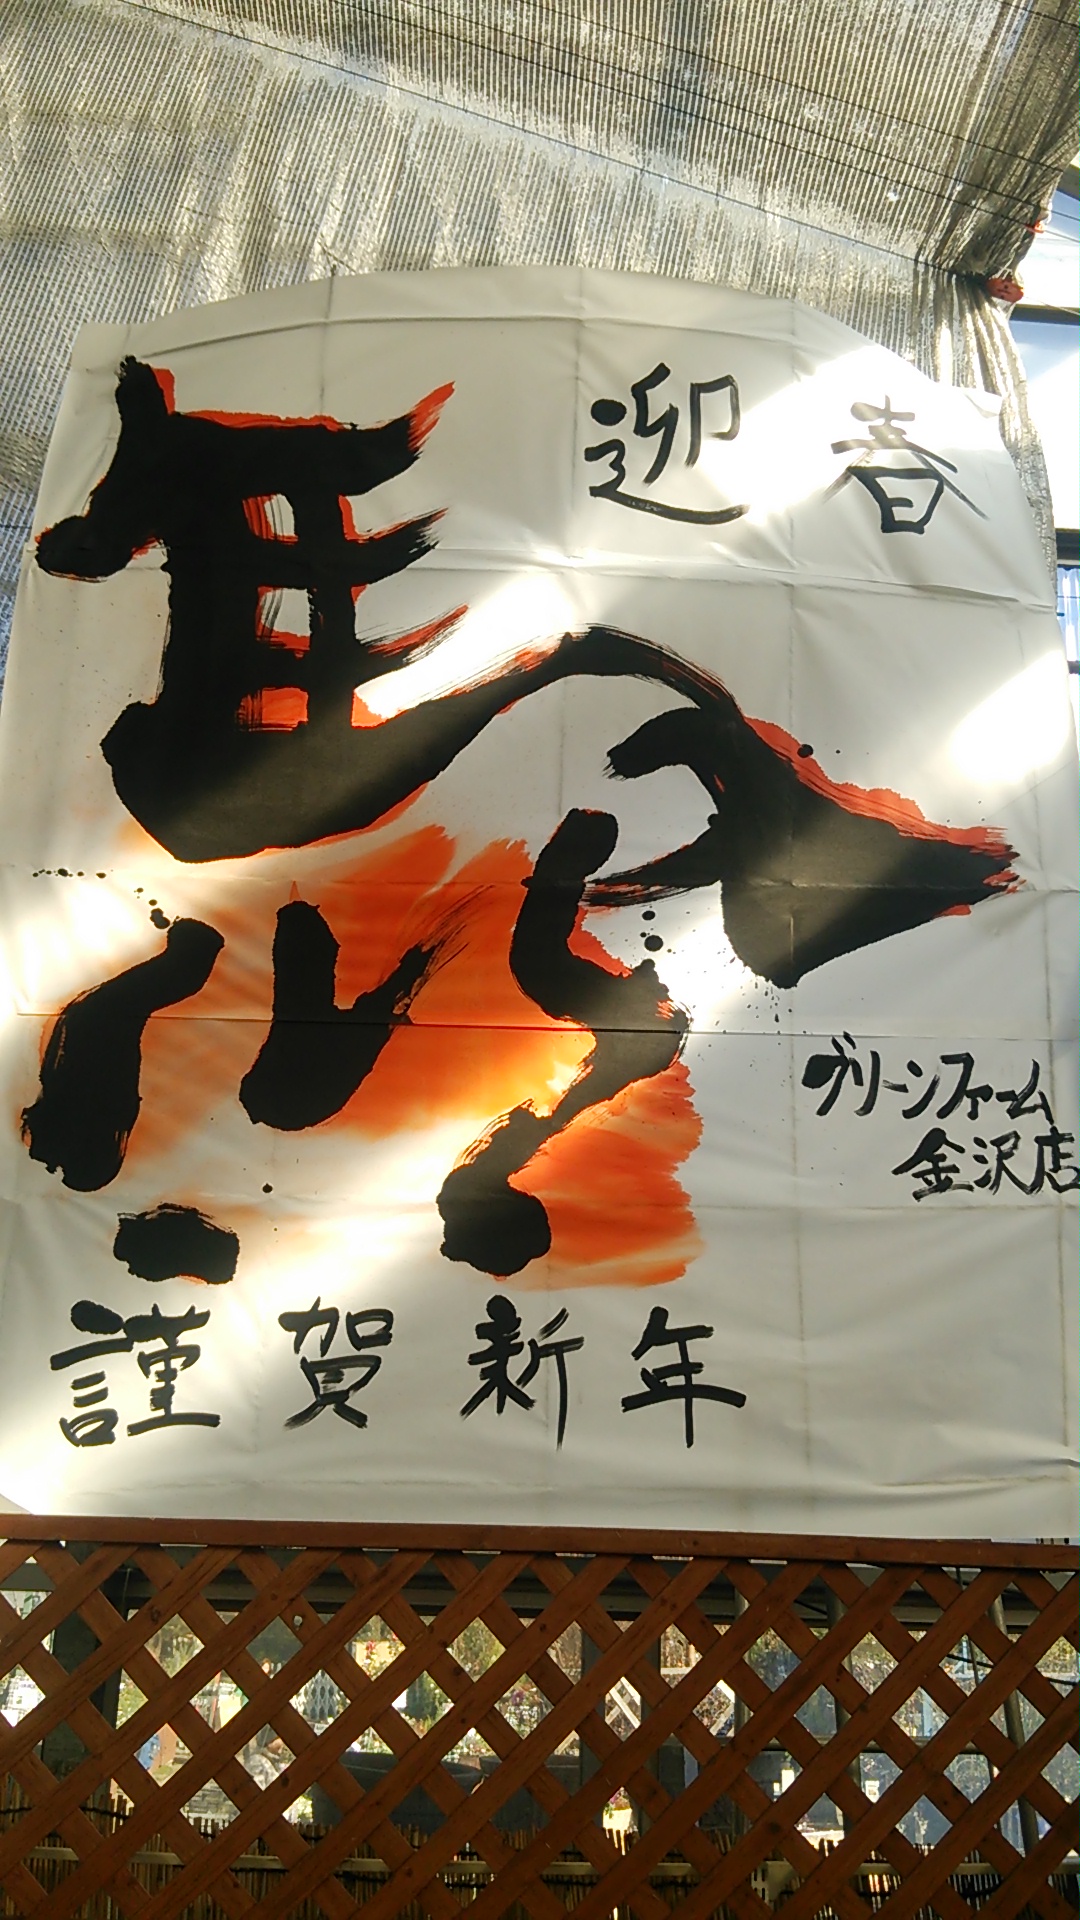 迎春
馬
グリーンファーム
金沢店
謹賀新年